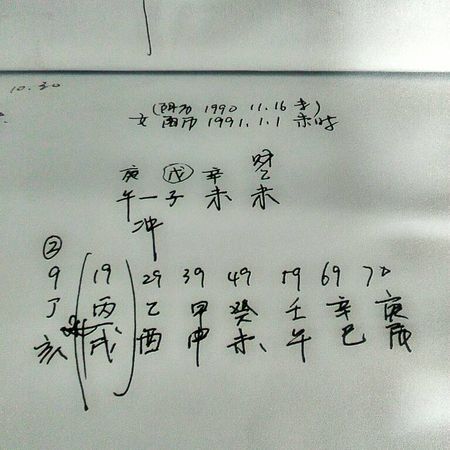 10.30
(阴历 1990 11.16 未)
女 阳历 1991.1.1 未时
财
庚 戊 辛 乙
午一子 未 未
冲
②
9 (19) 29 39 49 59 69 79
丁 丙 乙 甲 癸 壬 辛 庚
亥 戌 酉 申 未 午 巳 辰